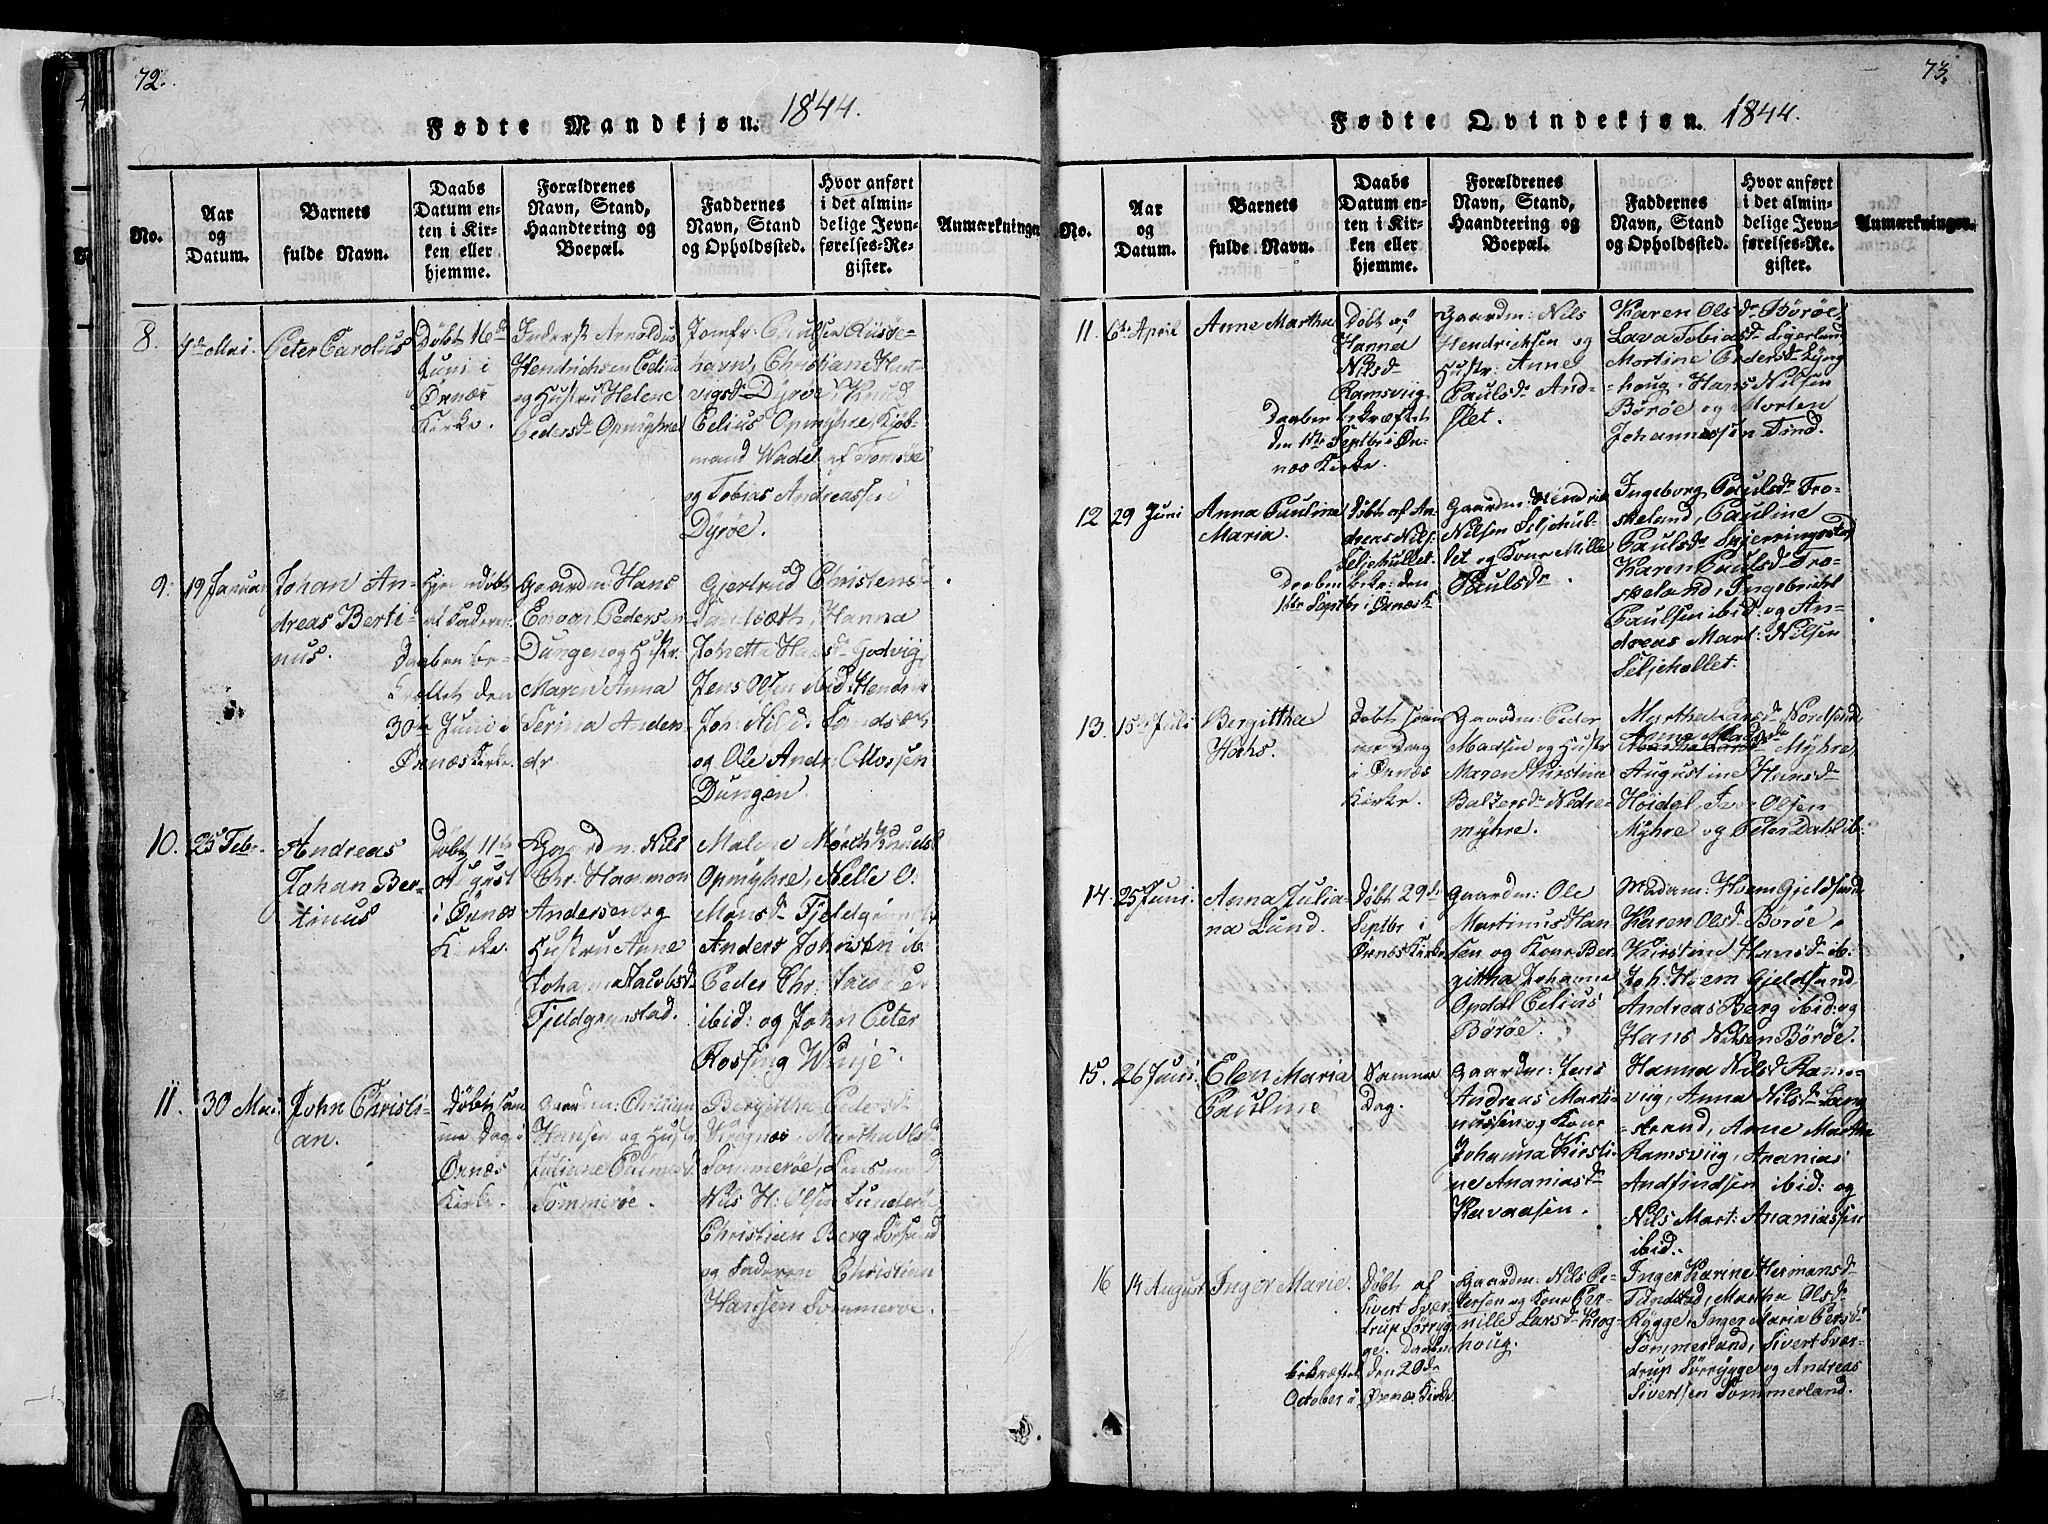 72.
Fødte Mandkjøn. 1844.
No.
Aar
og
Datum.
Barnets
fulde Navn.
Daabs
Datum en-
ten i Kir-
ken eller
hjemme.
Forældrenes
Navn, Stand,
Haandtering og
Boepæl.
Faddernes
Navn, Stand
og Opholdssted.
Hvor anført
i det almin-
delige Jevn-
førelses-Re-
gister.
Anmærkninger
8.
4de Mai.
Peter Carolus
Døbt 16de
Juni i
Ørnæs
Kirke.
Inderst Arnoldus
Hendrichsen Celius
og Hustru Helene
Pedersdr Opmÿhre
Jomfr: Paulsen Riisøe-
havn, Christiane Hart-
vigsdr Dÿrøe, Knud
Celius Opmÿhre, Kjøb-
mand Wadel af Tromsøe
og Tobias Andreassen
Dÿrøe.
9.
19 Januar
Johan An-
dreas Berti-
nus.
Hjemmedøbt
af Faderen
Daaben be-
kræftet den
30te Juni i
Ørnæs Kirke.
Gaardm: Hans
Enoch Pedersen
Dungen og Hustr.
Maren Anna
Serina Anders
dr
Gjertrud Christensdr
Sandsæt, Hanna
Johetta Hansdr Godvig,
Jens Olsen ibid: Hendrik
Joh: Sandsæt
og Ole Andr: Olussen
Dungen
10.
25 Febr.
Andreas
Johan Ber-
tinus
Døbt 11te
August
i Ørnæs
Kirke.
Gaardm: Nils
Chr. Hammon
Andersen og
Hustru Anne
Johanna Jacobsdr
Fjeldgrynstad.
Malene Mørch Knudsdr
Opmÿhre, Nille O.
Monsdr Fjeldgrynst.
Anders Johnsen ib:
Peder Chr. Jacobsen
ibid: og John Peter
Rossing Winje.
11.
30 Mai
John Christi-
an.
Døbt sam-
me Dag i
Ørnæs
Kirke.
Gaardm: Christian
Hansen og Hustr.
Juliane Palmesdr
Sommerøe.
Bergitha Pedersdr
Krognæs, Martha Olsdr
Sommerøe, Lensmand
Nils H: Olsen Lunderøe
Christian Berg Sørsand
og Faderen Christian
Hansen Sommerøe.
73.
Fødte Qvindekjøn. 1844.
No.
Aar
og
Datum.
Barnets
fulde Navn.
Daabs
Datum en-
ten i Kir-
ken eller
hjemme.
Forældrenes
Navn, Stand,
Haandtering og
Boepæl.
Faddernes
Navn, Stand
og Opholdssted.
Hvor anført
i det almin-
delige Jevn-
førelses-Re-
gister.
Anmærkninger.
11.
6te April
Anne Martha
Døbt af
Hanna
Nilsdr
Ramsviig.
Daaben bekræftet
den 1ste Septbr i Ør-
næs Kirke.
Gaardm: Nils
Hendrichsen og
Hustr: Anne
Paulsdr And-
slet.
Karen Olsdr Børøe,
Lava Tobiasdr Ligerland
Martine Pedersdr Lÿng
houg, Hans Nilsen
Børøe og Morten
Johannessen Tind.
12
29 Juni
Anna Pauline
Maria.
Døbt af An-
dreas Nils.
Seljehullet.
Daaben bekr: den
1ste Septbr i Ørnæs K.
Gaardm: Hendrik
Nilsen Seljehul-
let og Kone Mille
Paulsdr.
Ingeborg Paulsdr Tro-
skeland, Pauline
Paulsdr Skjerringsstad
Karen Paulsdr Tro-
skeland, Ingebricht
Paulsen ibid: og An-
dreas Mart: Nilsen
Seljehollet.
13.
15de Juli
Bergittha
Hahs.
Døbt sam-
me Dag
i Ørnæs
Kirke.
Gaardm: Peder
Madsen og Hustr
Maren Kirstine
Baltzersdr Nedre-
mÿhre.
Martha Larsdr Nordfund,
Anne Madsdr
Mÿhre,
Augustine Hansdr
Høidal, Iver Olsen
Mÿhre og Peter Dahl ib:
14.
25 Juni.
Anna Julia-
na Lund.
Døbt 29de
Septbr i
Ørnæs Kirke
Gaardm: Ole
Martinus Han-
sen og Kone Ber-
githa Johanna
Opdal Celius
Børøe.
Madam: Hvem Gjeldsund
Karen Olsdr Børøe,
Kirstine Hansdr ib:
Joh: Hvem Gjeldsund,
Andreas Berg ibid: og
Hans Nilsen Børøe.
15.
26 Juni.
Elen Maria
Pauline
Samme
Dag.
Gaardm: Jens
Andreas Marti-
nussen og Kone
Johanna Kirsti-
ne Ananiasdr
Kavaasen.
Hanna Nilsdr Rams-
viig, Anna Nilsdr Lang
strand, Anne Martha
Ramsviig, Ananias
Andfindsen ibid: og
Nils Mart: Ananiassen
ibid.
16
14 August
Inger Marie.
Døbt af
Sivert Sver-
drup Sørrÿg-
ge. Daaben
bekræftet den 20de
October i Ørnæs Kirke.
Gaardm: Nils Pe-
tersen og Kone Per-
nille Larsdr Krog-
houg.
Inger Karine Hermansdr
Tandstad, Martha Olsdr
Rÿgge, Inger Maria Persdr
Sommerland, Sivert Sver-
drup Sørrÿgge og Andreas
Sivertsen Sommerland.